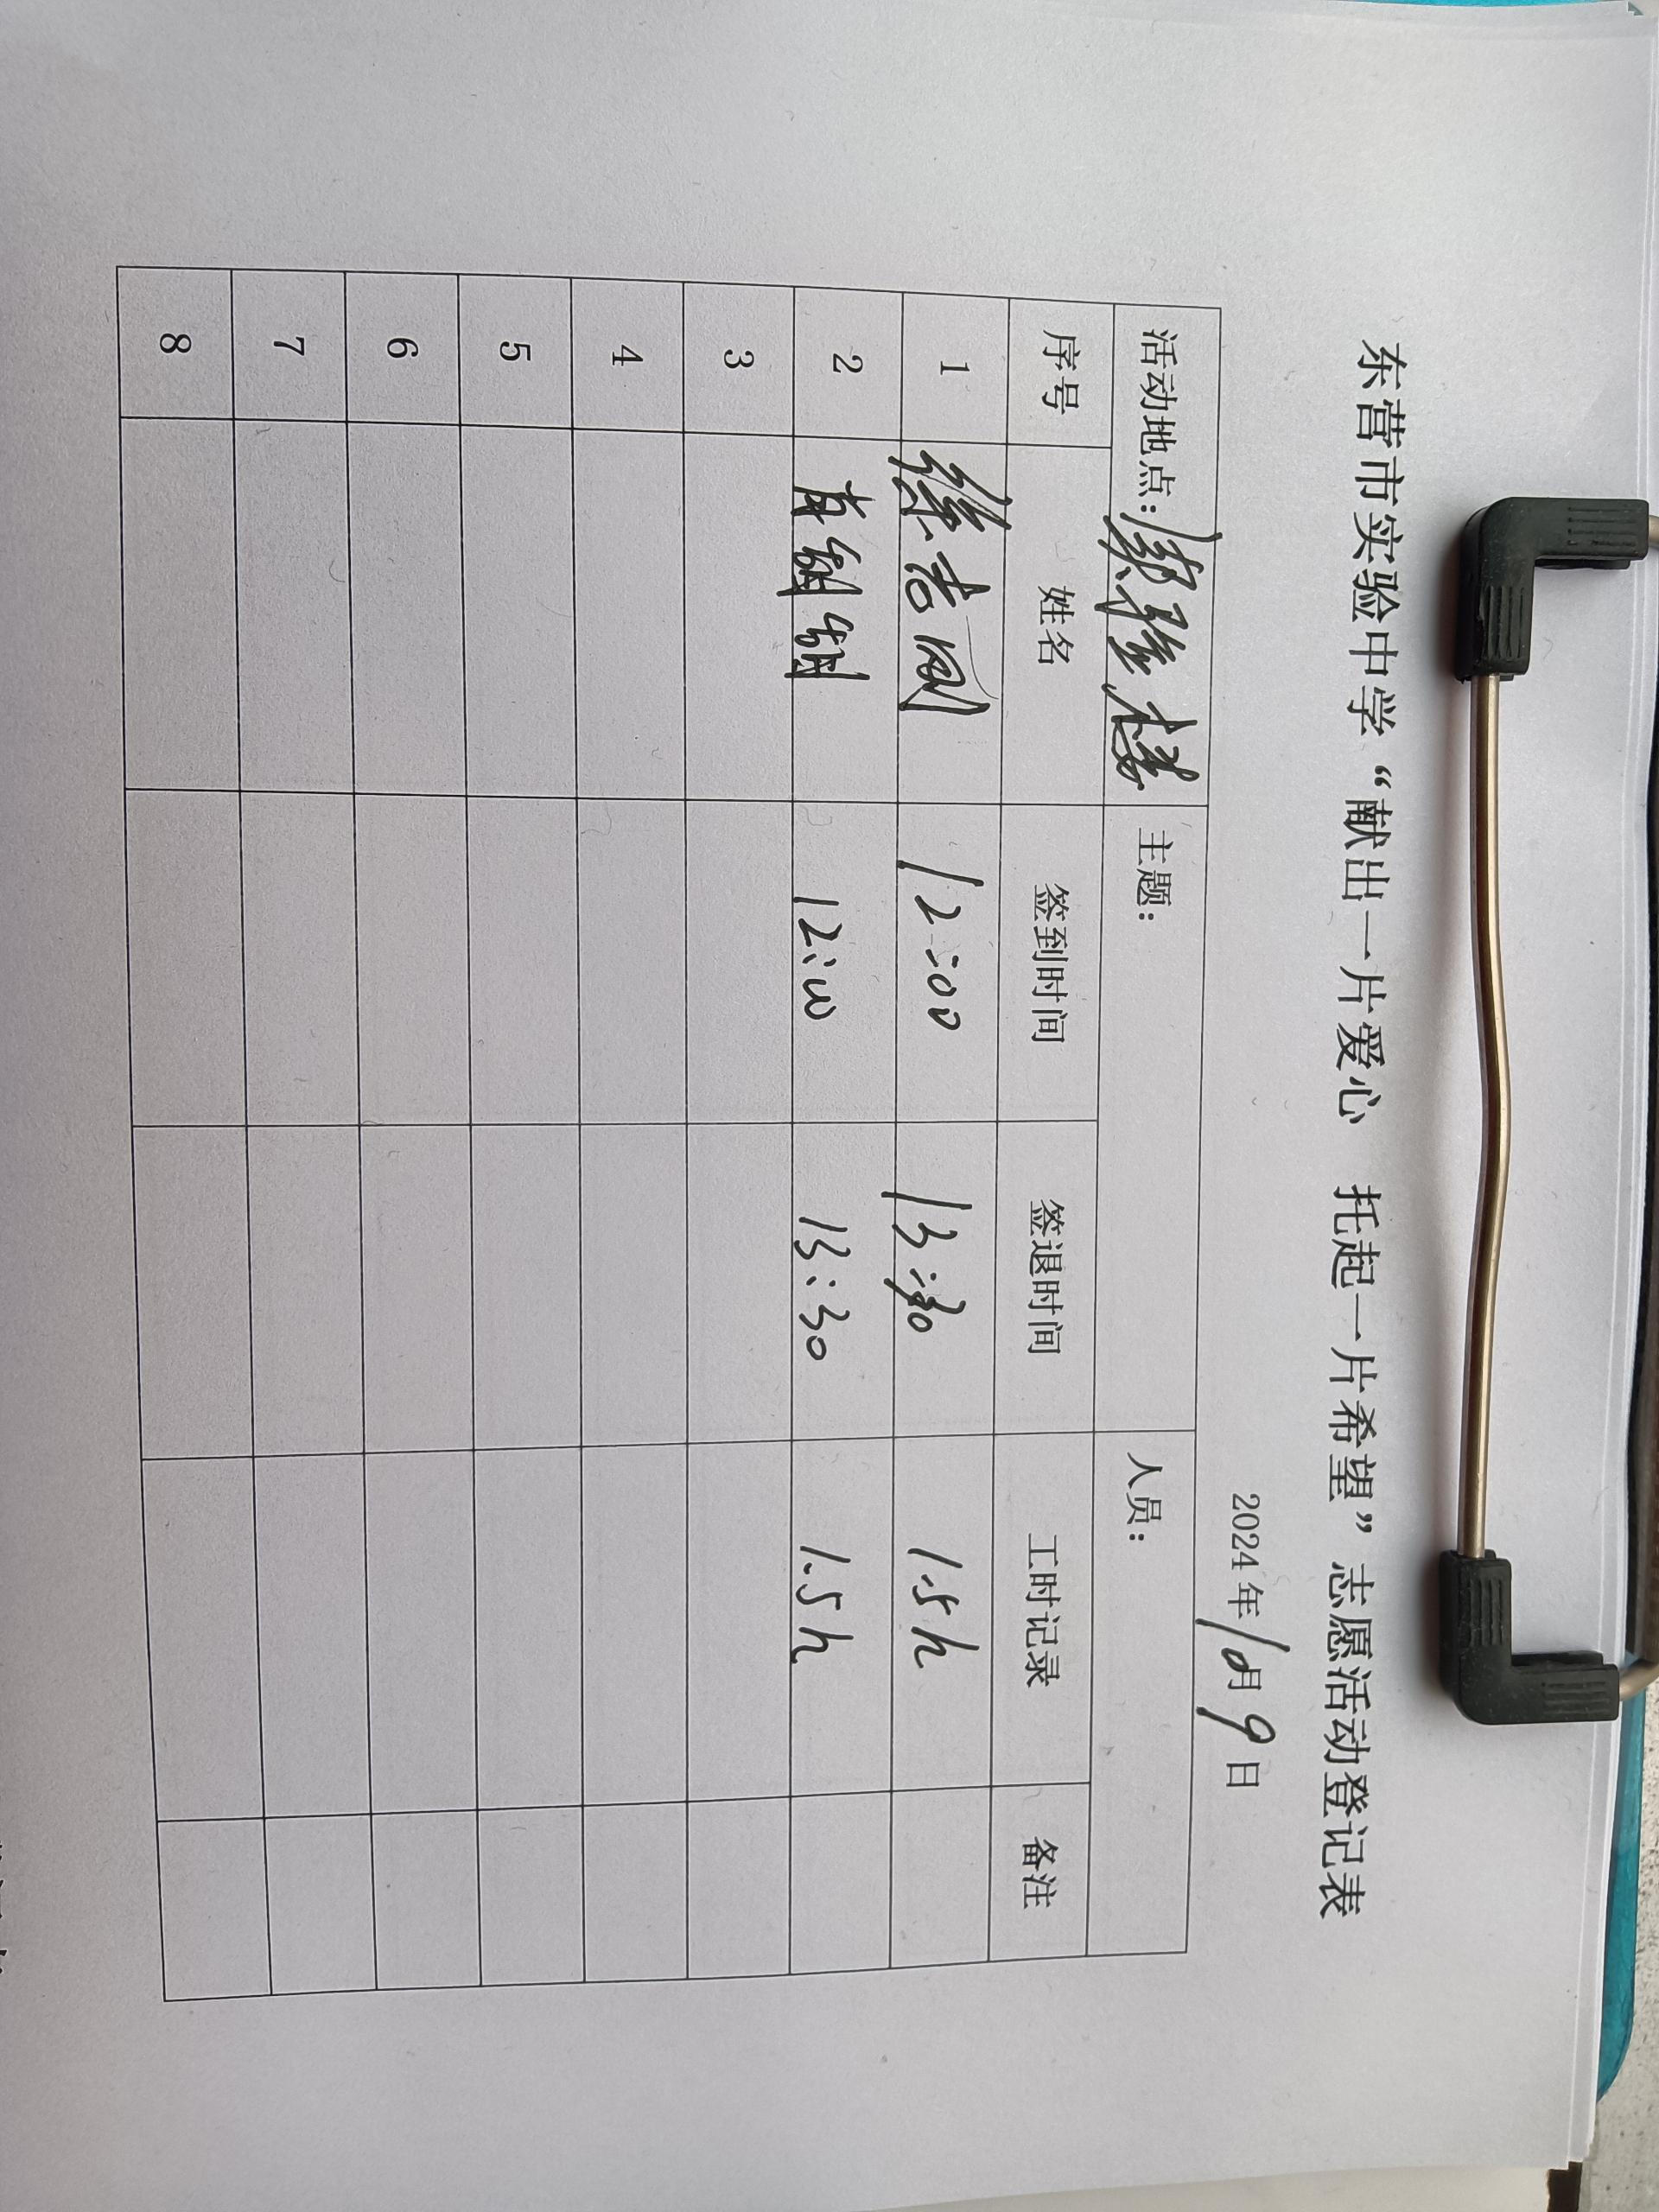 东营市实验中学“献出一片爱心 托起一片希望”志愿活动登记表
2024年 月9日
活动地点:实验楼 主题: 人员:
序号 姓名 签到时间 签退时间 工时记录 备注
1 徐志刚 12:00 13:30 1.5h
2 肖娟娟 12:00 13:30 1.5h
3
4
5
6
7
8